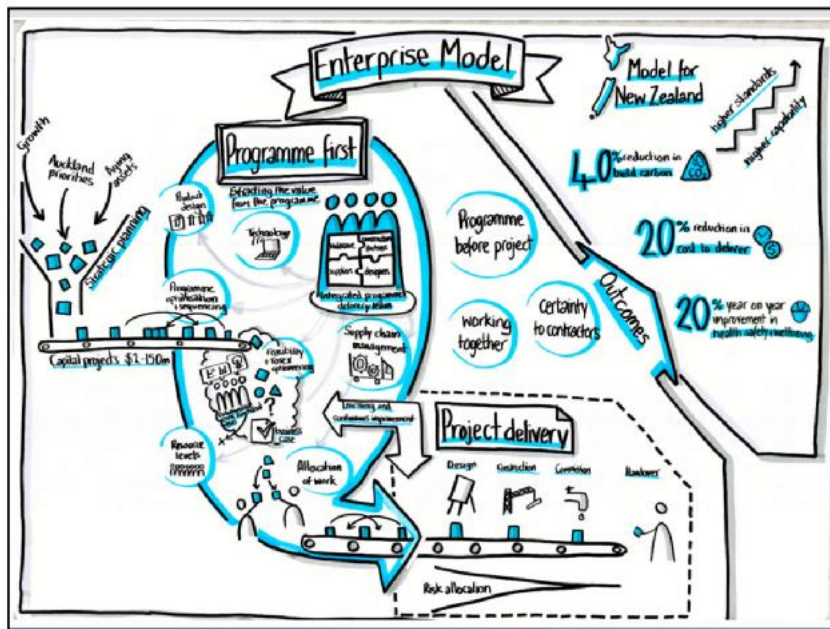 Enterprise Model
Model for
New Zealand
higher standards
higher capability
40% reduction in
build carbon
CO2
20% reduction in
cost to deliver
$
20% year on year
improvement in
health safety wellbeing
Outcomes
Growth
Auckland
priorities
Aging
assets
Strategic planning
Programme first
Starting the value
from the programme
Product
design
Technology
suppliers
designers
Integrated programme
delivery team
Programme
optimisation
+ sequencing
Capital projects $2-150m
Supply chain
management
Feasibility
optioneering
?
business
case
Learning and
continuous improvement
Resource
levels
Allocation
of work
Programme
before project
Working
together
Certainty
to contractors
Project delivery
Design
Construction
Handover
Risk allocation